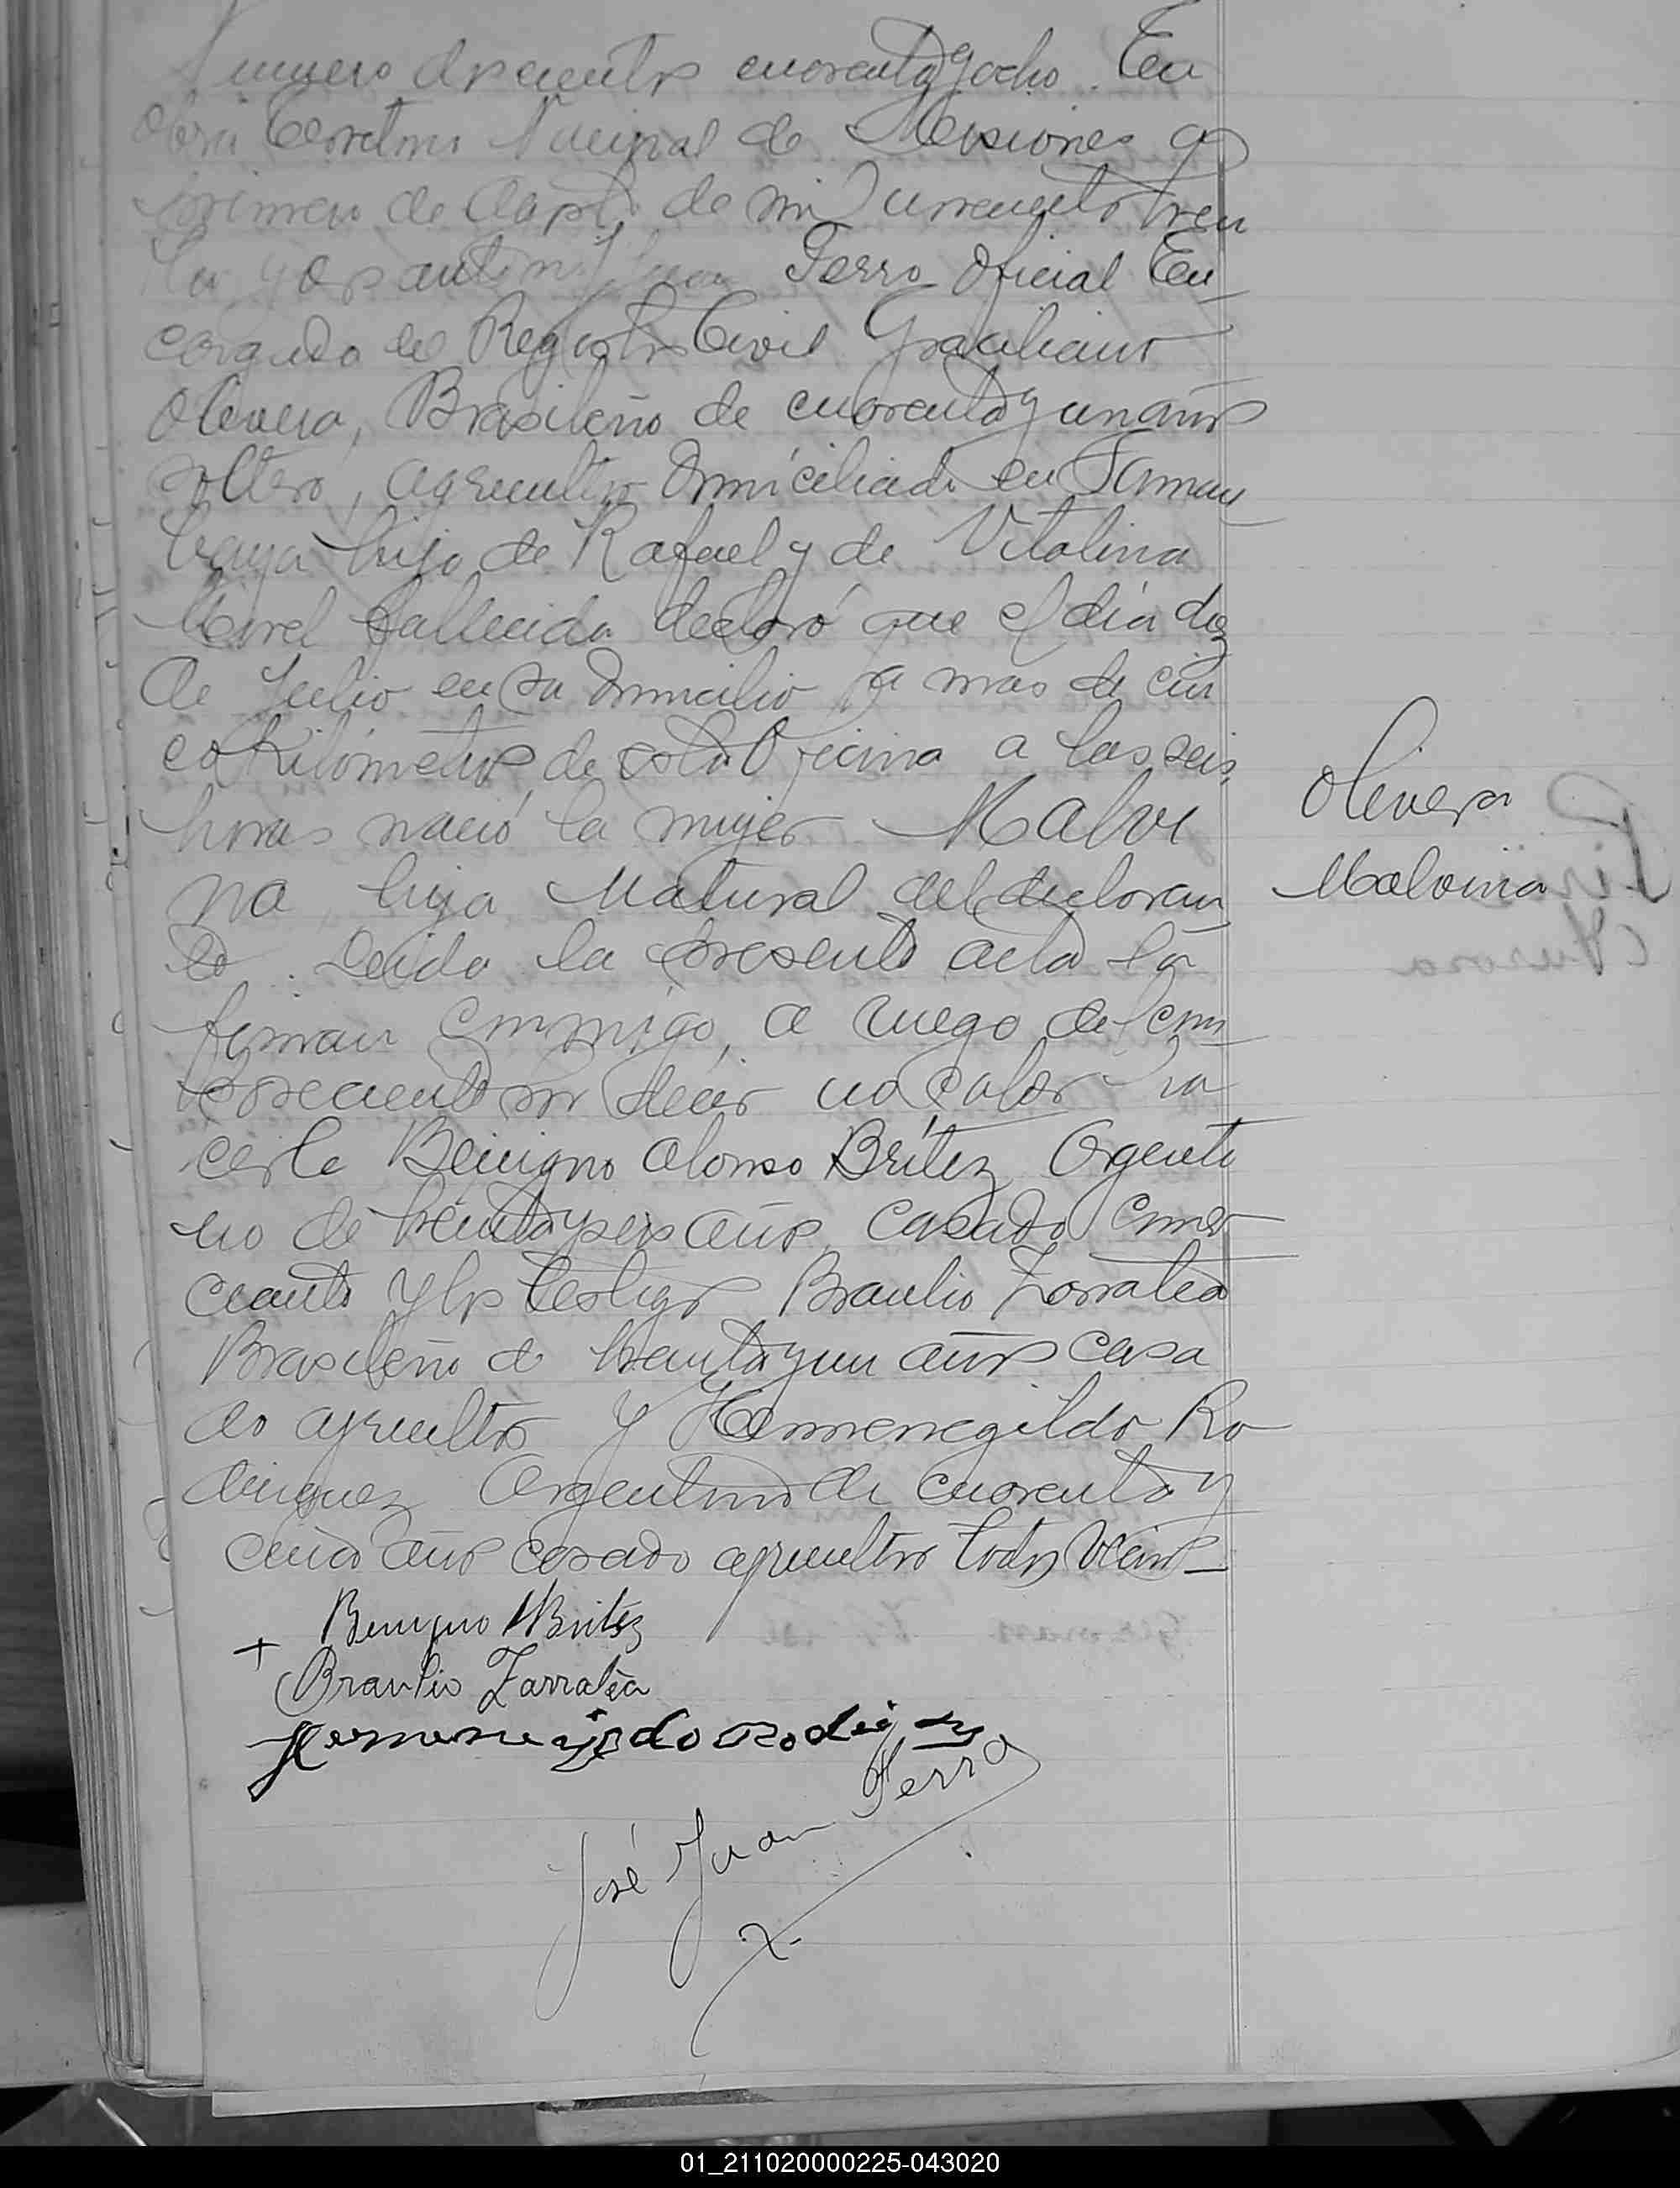 Numero doscientos cuarenta y ocho. En
Oberá Territorio Nacional de Misiones a
primero de Agosto de mil novecientos trein
ta y dos ante mi Juan Ferro Oficial En
cargado del Registro Civil Graciliano
Olivera, Brasileño de cuarenta y un años
soltero, agricultor domiciliado en
hijo de Rafael y de Vitalina
fallecida declaró que el día diez
de Julio en su domicilio a mas de cin
co kilómetros de esta Oficina a las seis
horas nació la mujer Malvi
na, hija Natural del declaran
te. Leida la presente acta la
firman conmigo, a ruego del com
pareciente por decir no saber ha
cerlo Benigno Alonso Britez Argenti
no de treinta y seis años, casado comer
ciante y los testigos Braulio Zarratea
Brasileño de treinta y un años casa
do agricultor y Hermenegildo Ro
driguez Argentino de cuarenta y
cinco años casado agricultor todos vecinos
Olivera
Malvina
Benigno A Britez
+
Braulio Zarratea
Hermenegildo Rodriguez
José Juan Ferro
01_211020000225-043020